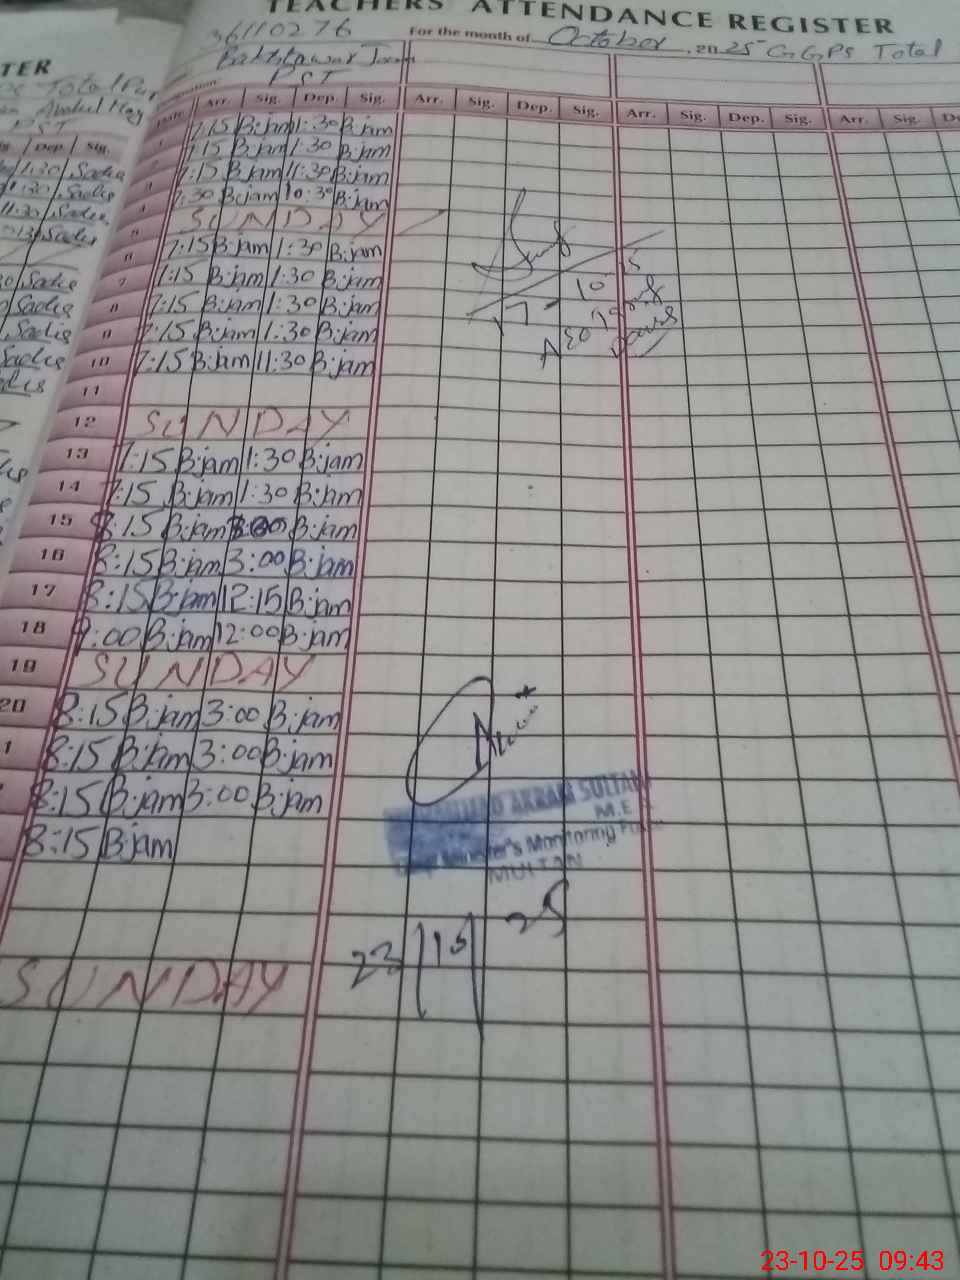 TEACHERS' ATTENDANCE REGISTER
36110276 For the month of October, 2025 GGPS Total
PST
Date Arr. Sig. Dep. Sig. Arr. Sig. Dep. Sig. Arr. Sig. Dep. Sig. Arr. Sig.
1 7:15 B:jam 1:30 B:jam
2 7:15 B:jam 1:30 B:jam
3 7:15 B:jam 11:30 B:jam
4 7:30 B:jam 10:30 B:jam
5 SUNDAY
6 7:15 B:jam 1:30 B:jam
7 7:15 B:jam 1:30 B:jam
8 7:15 B:jam 1:30 B:jam
9 7:15 B:jam 1:30 B:jam
10 7:15 B:jam 11:30 B:jam
11
12 SUNDAY
13 7:15 B:jam 1:30 B:jam
14 7:15 B:jam 1:30 B:jam
15 8:15 B:jam 3:00 B:jam
16 8:15 B:jam 3:00 B:jam
17 8:15 B:jam 12:15 B:jam
18 9:00 B:jam 12:00 B:jam
19 SUNDAY
20 8:15 B:jam 3:00 B:jam
1 8:15 B:jam 3:00 B:jam
8:15 B:jam 3:00 B:jam
8:15 B:jam
SUNDAY
AKRAM SULTAN
M.E.
Minister's Monitoring
MULTAN
23 25
TER
PST
Dep. Sig.
1:30 Sadie
1:30 Sadie
11:30 Sadie
Sadie
Sadie
Sadie
Sadie
Sadie
23-10-25 09:43